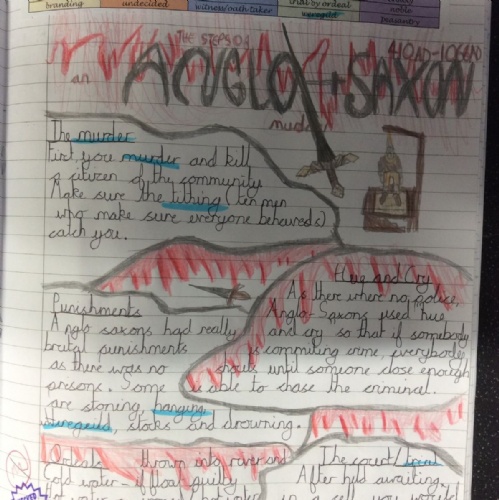 branding
undecided
witness/oath-taker
trial by ordeal
wereguild
noble
peasantry
THE STEPS OF
410AD-1066AD
an
ANGLO-SAXON
murder
The murder
First you murder and kill
a citizen of the community
Make sure the tithing (ten men
who make sure everyone behaved's)
catch you.
Hue and Cry
As there where no police,
Anglo-Saxons used hue
and cry so that if somebody
is commiting crime, everybody
shouts until someone close enough
is able to chase the criminal.
Punishments
Anglo saxons had really
brutal punishments
as there was no
prisons. Some
are stoning, hanging,
wereguild, stocks and drowning.
Ordeals thrown into river and
Cold water - if float guilty
Hot water
The court/
After had awaiting
in a cell you would